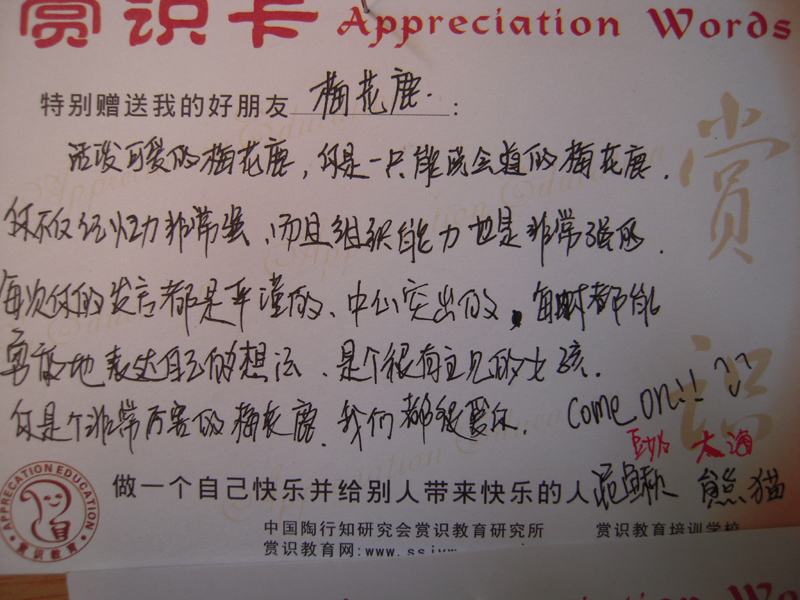 赏识卡 Appreciation Words
特别赠送我的好朋友 梅花鹿.:
活泼可爱的梅花鹿,你是一只能说会道的梅花鹿.
你不仅记忆力非常强、而且组织能力也是非常强的.
每次你的发言都是严谨的、中心突出的,每时都能
勇敢地表达自己的想法、是个很有主见的女孩.
你是个非常厉害的梅花鹿.我们都很爱你. Come on!!
大海
做一个自己快乐并给别人带来快乐的人 泥鳅 熊猫
中国陶行知研究会赏识教育研究所 赏识教育培训学校
赏识教育网:www.
APPRECIATION EDUCATION
赏识教育
赏识
Appreciation Wo